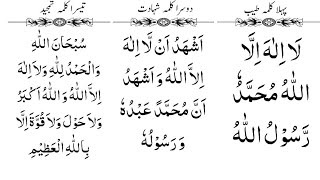 پہلا کلمہ طیب
لَا اِلٰهَ اِلَّا
اللهُ مُحَمَّدٌ
رَّسُوْلُ اللهِ
دوسرا کلمہ شہادت
اَشْهَدُ اَنْ لَّا اِلٰهَ
اِلَّا اللهُ وَ اَشْهَدُ
اَنَّ مُحَمَّدًا عَبْدُهٗ
وَ رَسُوْلُهٗ
تیسرا کلمہ تمجید
سُبْحَانَ اللهِ
وَالْحَمْدُ لِلّٰهِ وَلَا اِلٰهَ
اِلَّا اللهُ وَ اللهُ اَكْبَرُ
وَلَا حَوْلَ وَلَا قُوَّةَ اِلَّا
بِاللهِ الْعَظِيْمِ